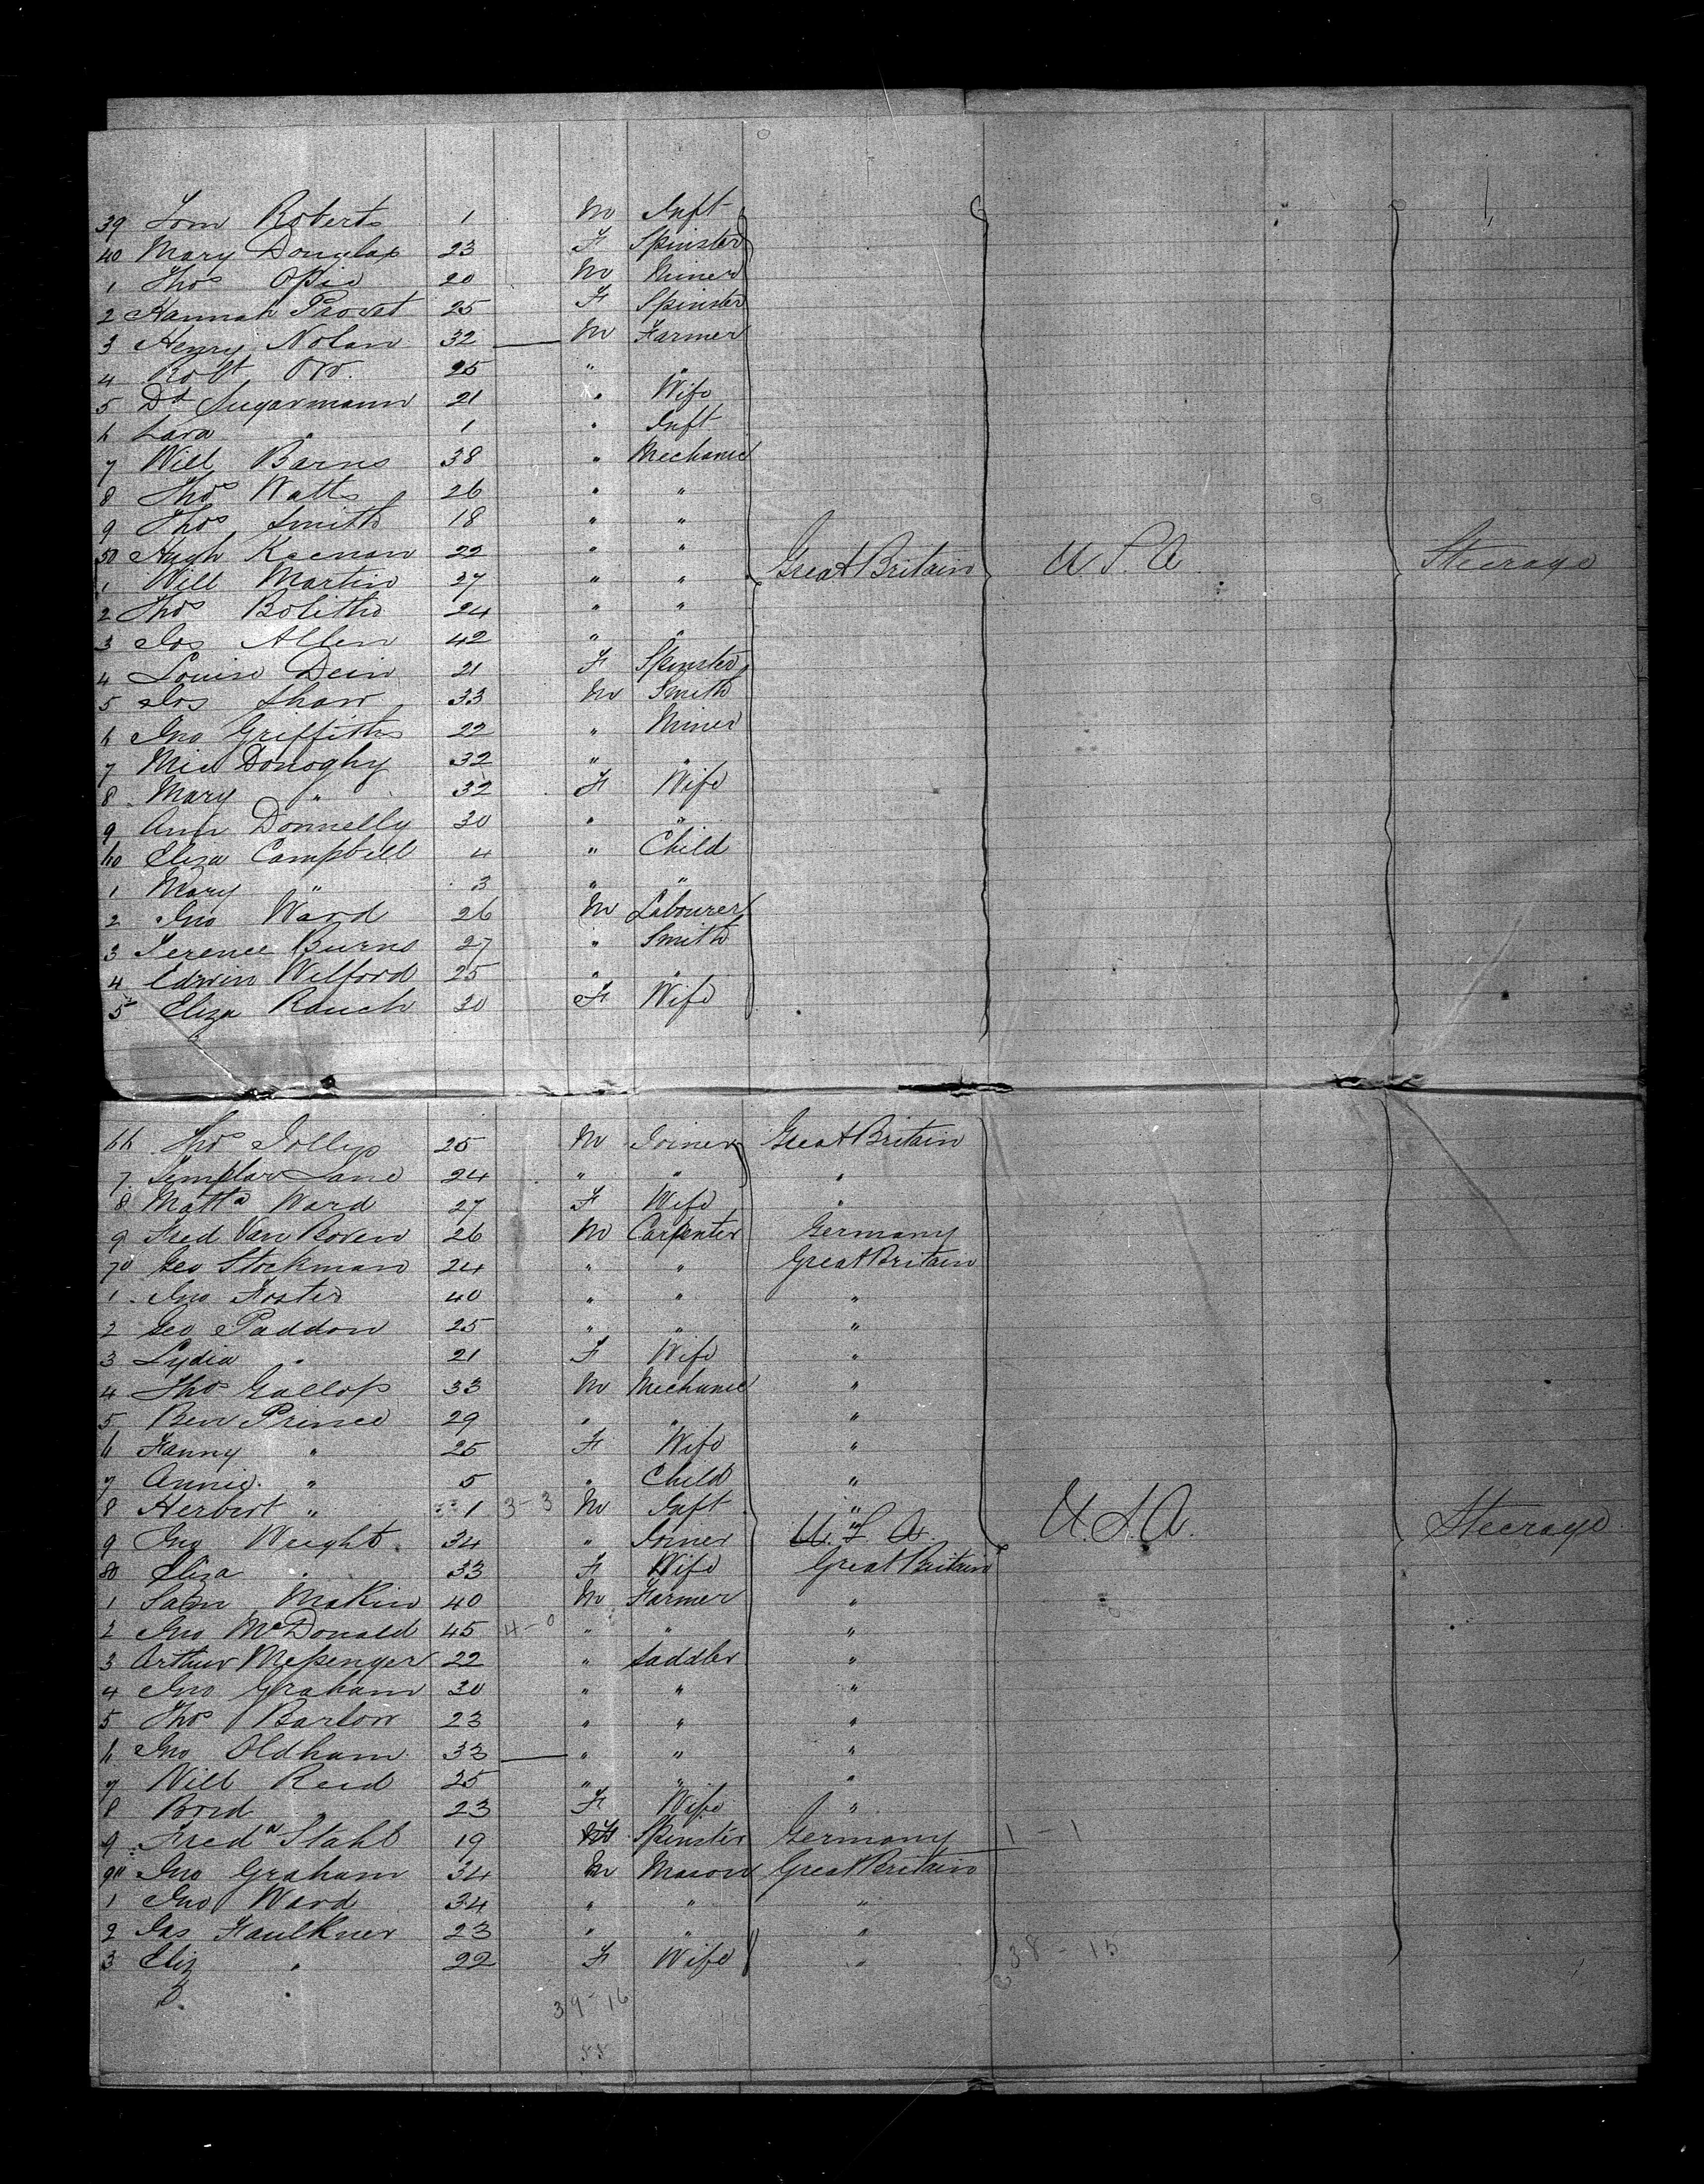 39 Tom Roberts 1 M Inft
40 Mary Douglas 23 F Spinster
1 Thos Opie 20 M Miner
2 Hannah Provst 25 F Spinster
3 Henry Nolan 32 — M Farmer
4 Robt Orr 25 " "
5 Dd Sugarmann 21 " Wife
6 Lara " 1 " Inft
7 Will Barns 38 " Mechanic
8 Thos Watts 26 " "
9 Thos Smith 18 " "
50 Hugh Keenan 22 " " Great Britain U.S.A. Steerage
1 Will Martin 27 " "
2 Thos Bolitho 24 " "
3 Jos Allen 42 " "
4 Louise Dein 21 F Spinster
5 Jos Shaw 33 M Smith
6 Jno Griffiths 22 " Miner
7 Mic Donoghy 32 " "
8 Mary " 32 F Wife
9 Ann Donnelly 30 " "
60 Eliza Campbell 4 " Child
1 Mary " 3 " "
2 Jno Ward 26 M Labourer
3 Terence Burns 27 " Smith
4 Edwin Wilford 25 " "
5 Eliza Rauch 30 F Wife
66 Thos Jollys 25 M Joiner Great Britain
7 Templar Lane 24 " " "
8 Matta Ward 27 F Wife "
9 Fred Van Boven 26 M Carpenter Germany
70 Geo Stockman 24 " " Great Britain
1 Jno Foster 40 " " "
2 Geo Paddon 25 " " "
3 Lydia " 21 F Wife "
4 Thos Gallop 33 M Mechanic "
5 Ben Prince 29 " " "
6 Fanny " 25 F Wife "
7 Annie " 5 " Child "
8 Herbert " 1 3-3 M Inft "
9 Jno Weight 34 " Joiner U.S.A. U.S.A. Steerage
80 Eliza " 33 F Wife Great Britain
1 Saml Makin 40 M Farmer "
2 Jno McDonald 45 4-0 " " "
3 Arthur Messenger 22 " Saddler "
4 Jno Graham 30 " " "
5 Thos Barlow 23 " " "
6 Jno Oldham 33 — " " "
7 Will Reid 25 " " "
8 Brid " 23 F Wife "
9 Freda Stahl 19 F Spinster Germany 1-1
90 Jno Graham 34 M Mason Great Britain
1 Jno Ward 34 " " "
2 Jas Faulkner 23 " " "
3 Eliz " 22 F Wife " 38-15
39-16
55